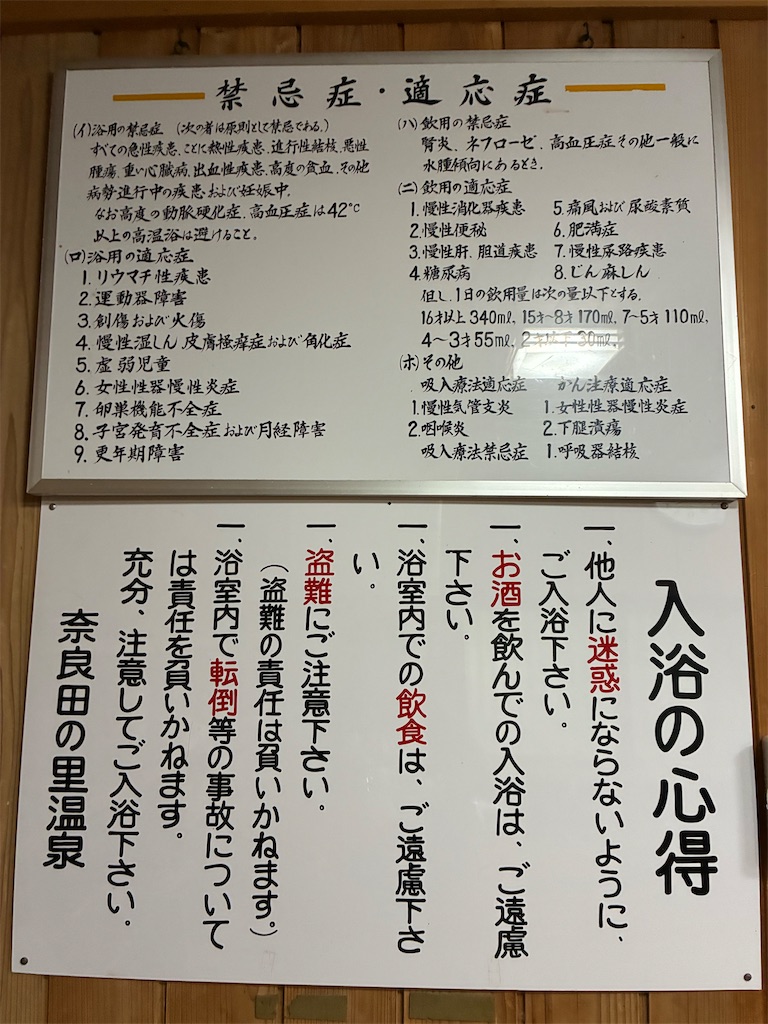 禁忌症・適応症
(イ)浴用の禁忌症 (次の者は原則として禁忌である。)
すべての急性疾患、ことに熱性疾患、進行性結核、悪性
腫瘍、重い心臓病、出血性疾患、高度の貧血、その他
病勢進行中の疾患および妊娠中。
なお高度の動脈硬化症、高血圧症は42℃
以上の高温浴は避けること。
(ロ)浴用の適応症
1.リウマチ性疾患
2.運動器障害
3.創傷および火傷
4.慢性湿しん、皮膚掻痒症および角化症
5.虚弱児童
6.女性性器慢性炎症
7.卵巣機能不全症
8.子宮発育不全症および月経障害
9.更年期障害
(ハ)飲用の禁忌症
腎炎、ネフローゼ、高血圧症その他一般に
水腫傾向にあるとき。
(ニ)飲用の適応症
1.慢性消化器疾患 5.痛風および尿酸素質
2.慢性便秘 6.肥満症
3.慢性肝、胆道疾患 7.慢性尿路疾患
4.糖尿病 8.じん麻しん
但し、1日の飲用量は次の量以下とする。
16才以上340ml、15才~8才170ml、7~5才110ml、
4~3才55ml、2才以下30ml、
(ホ)その他
吸入療法適応症 かん注療適応症
1.慢性気管支炎 1.女性性器慢性炎症
2.咽喉炎 2.下腿潰瘍
吸入療法禁忌症 1.呼吸器結核
入浴の心得
一、他人に迷惑にならないように、
ご入浴下さい。
一、お酒を飲んでの入浴は、ご遠慮
下さい。
一、浴室内での飲食は、ご遠慮下さ
い。
一、盗難にご注意下さい。
(盗難の責任は負いかねます。)
一、浴室内で転倒等の事故について
は責任を負いかねます。
充分、注意してご入浴下さい。
奈良田の里温泉